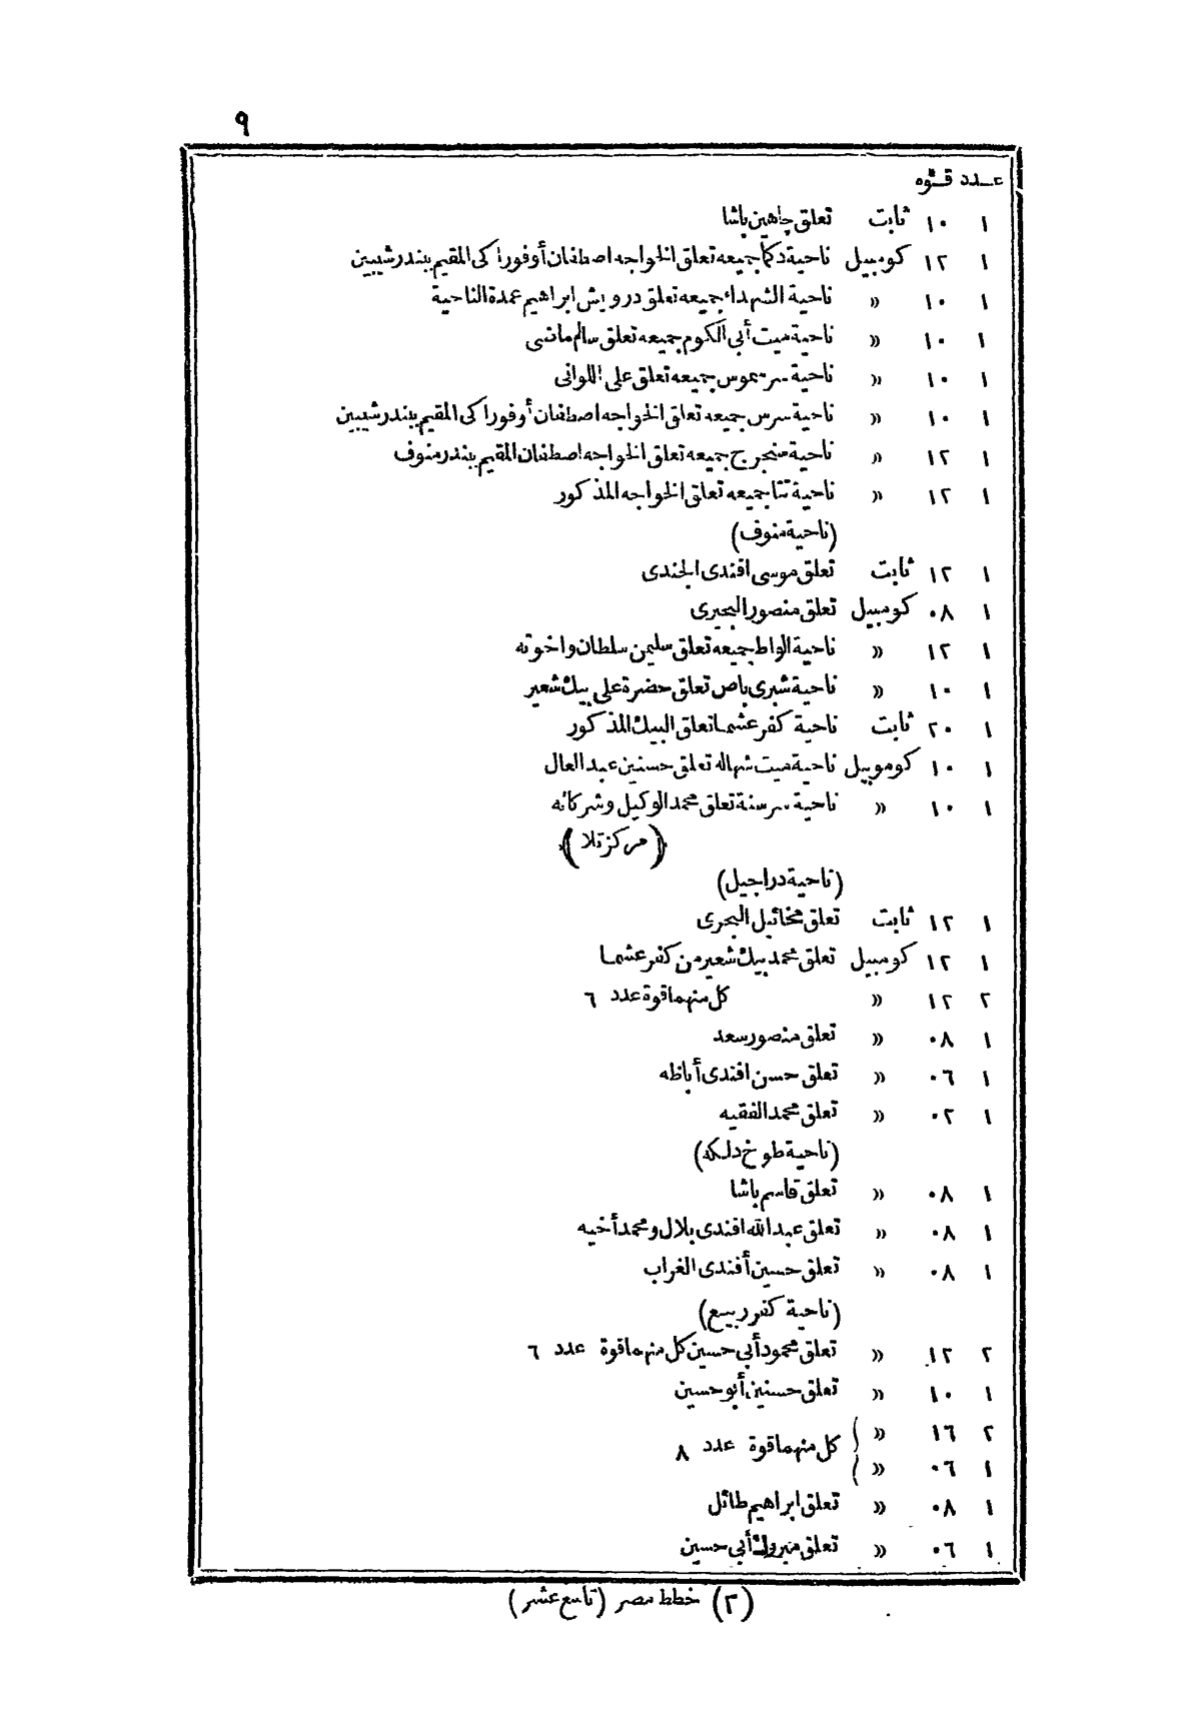 ٩
عدد قوّه
١ ١٠ ثابت تعلق چاهين باشا
١ ١٢ كومبيل ناحية دكما جميعه تعلق الخواجه اصطفان أوفوراكى المقيم ببندر شيبين
١ ١٠ » ناحية الشهداء جميعه تعلق درويش ابراهيم عمدة الناحية
١ ١٠ » ناحية ميت أبى الكوم جميعه تعلق سالم ماضى
١ ١٠ » ناحية سرسموس جميعه تعلق على اللوانى
١ ١٠ » ناحية سرس جميعه تعلق الخواجه اصطفان أوفوراكى المقيم ببندر شيبين
١ ١٢ » ناحية منجرج جميعه تعلق الخواجه اصطفان المقيم ببندر منوف
١ ١٢ » ناحية تتا جميعه تعلق الخواجه المذكور
(ناحية منوف)
١ ١٢ ثابت تعلق موسى افندى الجندى
١ ٠٨ كومبيل تعلق منصور البحيرى
١ ١٢ » ناحية الواط جميعه تعلق سليمن سلطان واخوته
١ ١٠ » ناحية شبرى باص تعلق حضرة على بيك شعير
١ ٢٠ ثابت ناحية كفر عشما تعلق البيك المذكور
١ ١٠ كوموبيل ناحية ميت شهاله تعلق حسنين عبد العال
١ ١٠ » ناحية سرسنة تعلق محمد الوكيل وشركائه
(مركز تلا)
(ناحية دراجيل)
١ ١٢ ثابت تعلق مخائيل البحرى
١ ١٢ كومبيل تعلق محمد بيك شعير من كفر عشما
٢ ١٢ » كل منهما قوة عدد ٦
١ ٠٨ » تعلق منصور سعد
١ ٠٦ » تعلق حسن افندى أباظه
١ ٠٢ » تعلق محمد الفقيه
(ناحية طوخ دلكه)
١ ٠٨ » تعلق قاسم باشا
١ ٠٨ » تعلق عبد الله افندى بلال ومحمد أخيه
١ ٠٨ » تعلق حسين أفندى الغراب
(ناحية كفر ربيع)
٢ ١٢ » تعلق محمود أبى حسين كل منهما قوة عدد ٦
١ ١٠ » تعلق حسنين أبو حسين
٢ ١٦ » كل منهما قوة عدد ٨
١ ٠٦ »
١ ٠٨ » تعلق ابراهيم طائل
١ ٠٦ » تعلق مبروك أبى حسين
(٢) خطط مصر (تاسع عشر)